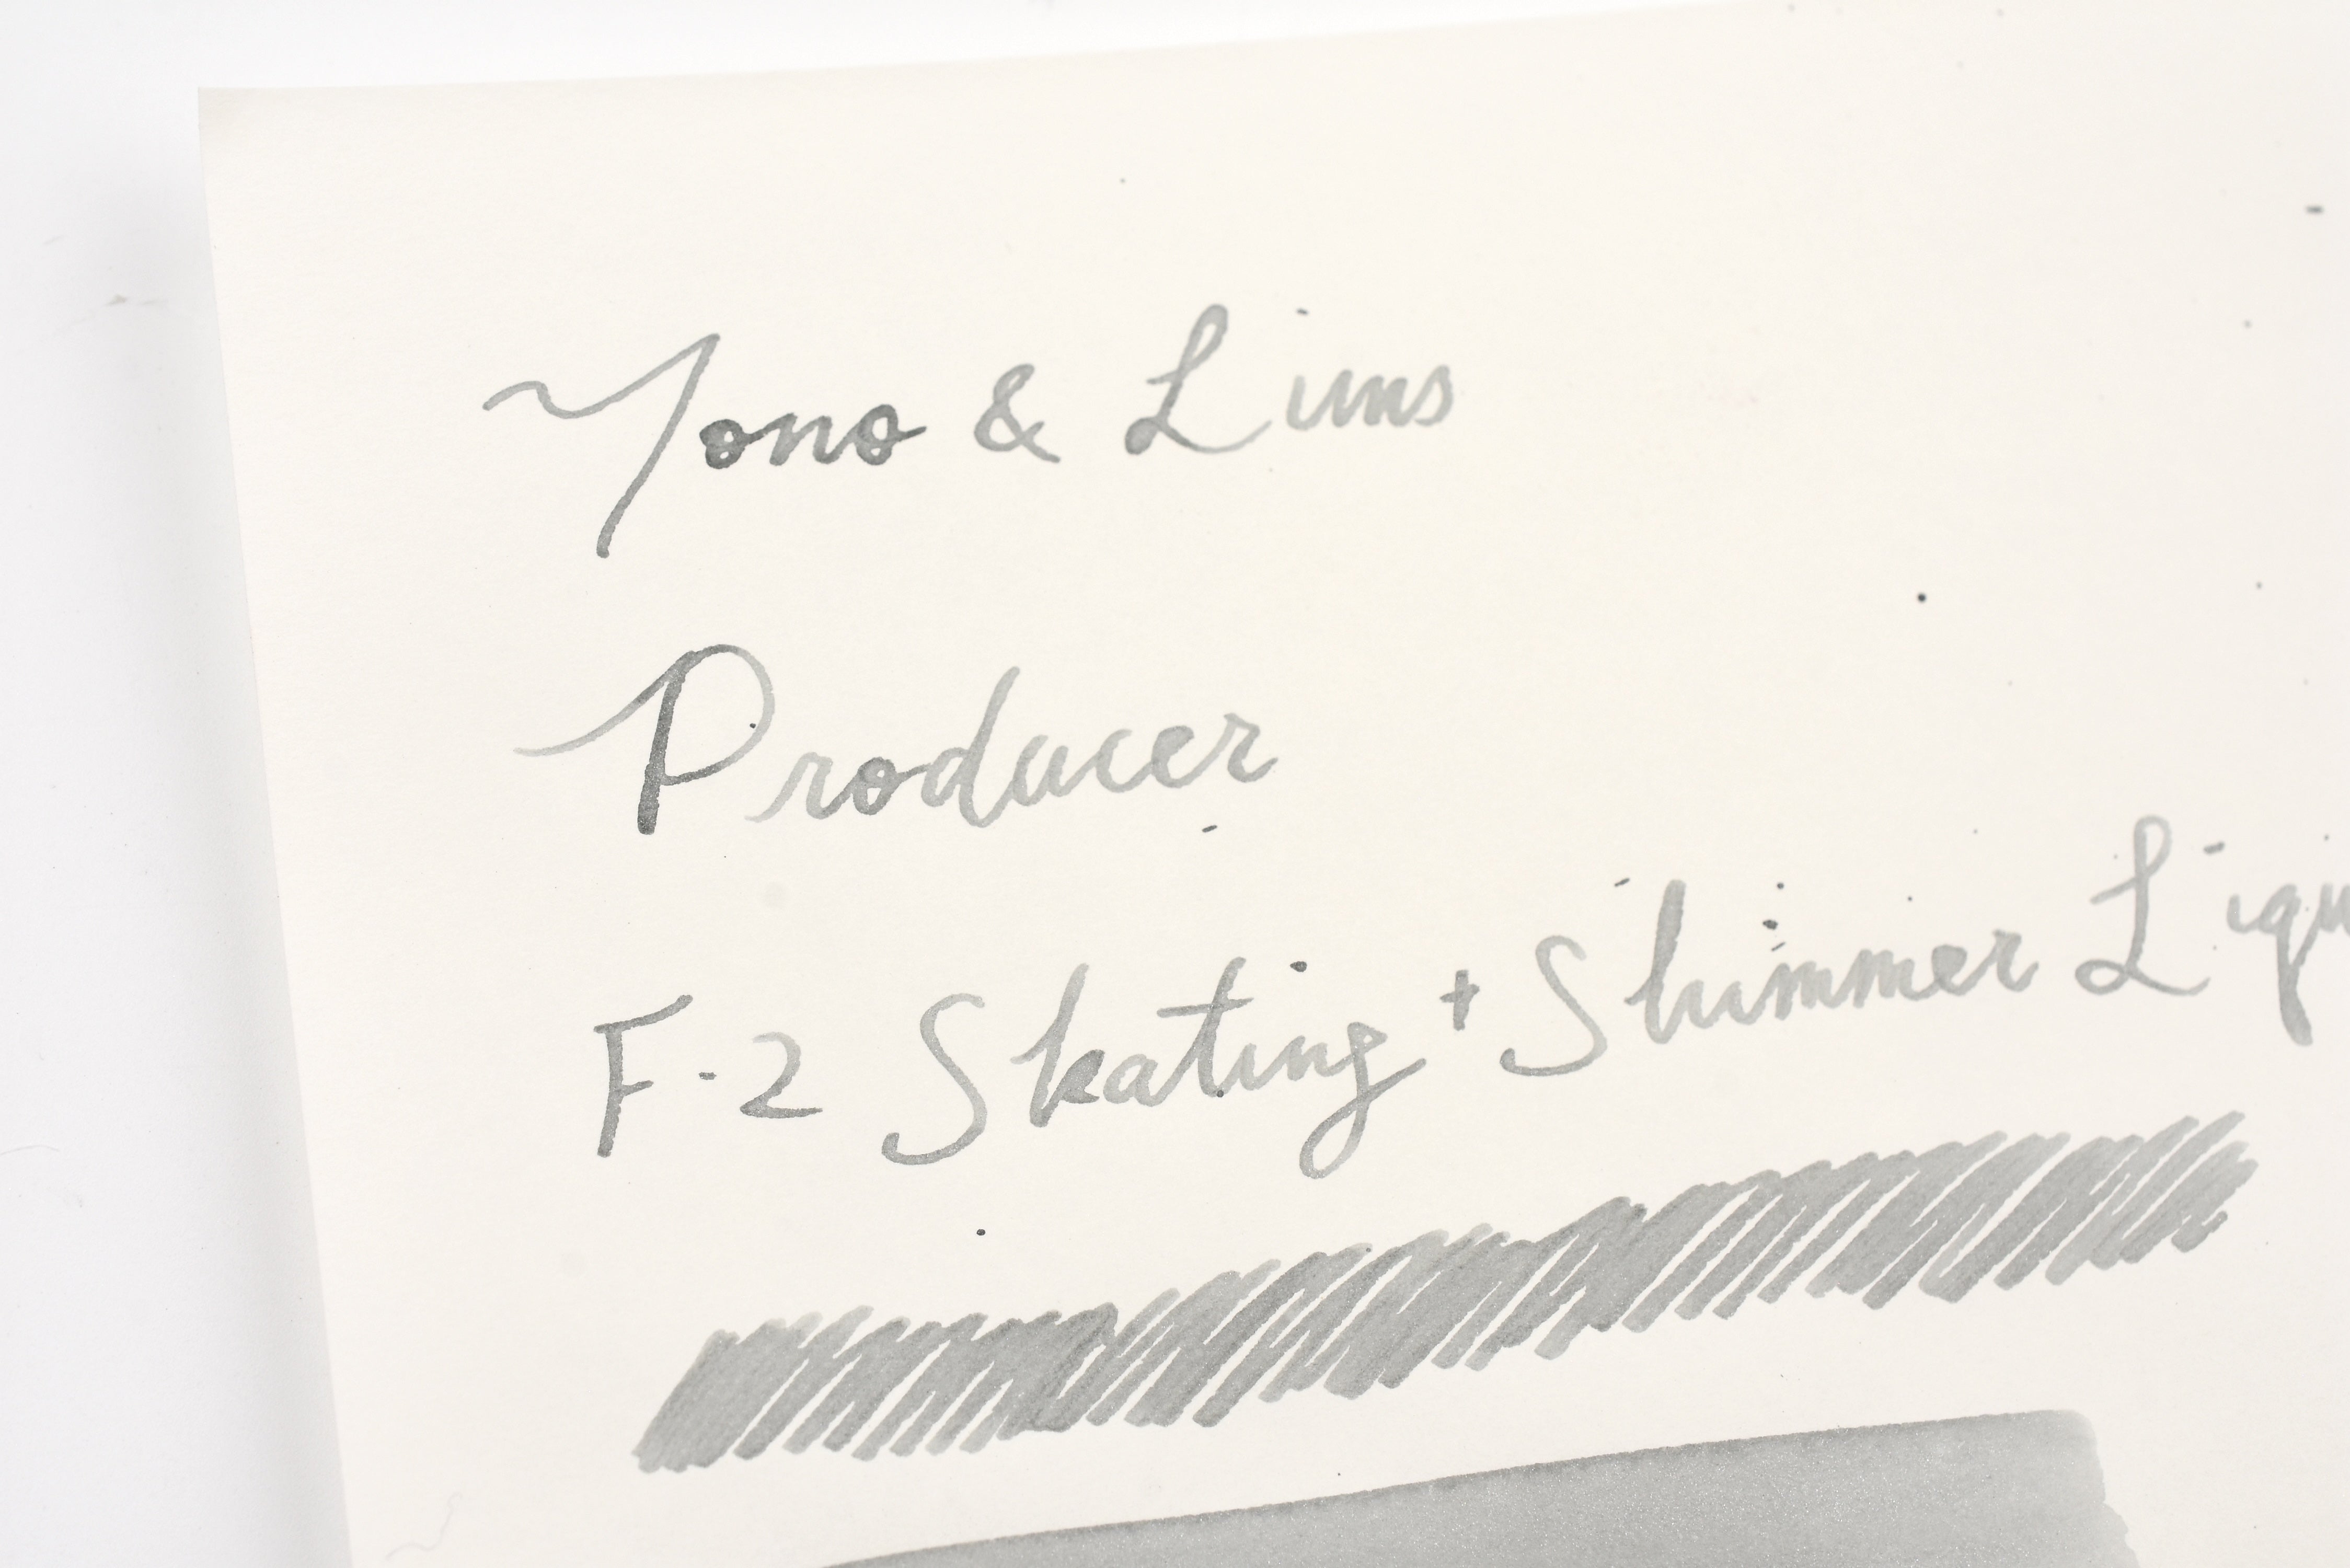 Yono & Lims
Producer
F-2 Skating + Shimmer Liqu